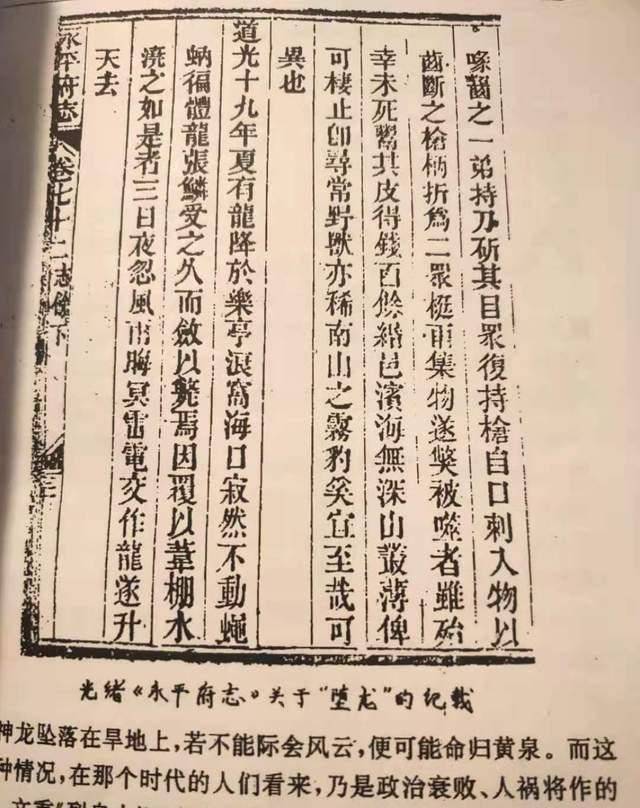 喙齧之一弟持刀斫其目眾復持槍自口刺入物以
齒斷之槍柄折為二眾梃雨集物遂斃被噬者雖殆
幸未死鬻其皮得錢百餘緡邑濱海無深山叢薄俾
可棲止即尋常野獸亦稀南山之霧豹奚宜至哉可
異也
道光十九年夏有龍降於樂亭浪窩海口寂然不動蠅
蚋徧體龍張鱗受之久而斂以斃焉因覆以葦棚水
澆之如是者三日夜忽風雨晦冥雷電交作龍遂升
天去
永平府志 卷七十二志餘下
光绪《永平府志》关于“堕龙”的纪载
神龙坠落在旱地上，若不能际会风云，便可能命归黄泉。而这
种情况，在那个时代的人们看来，乃是政治衰败、人祸将作的